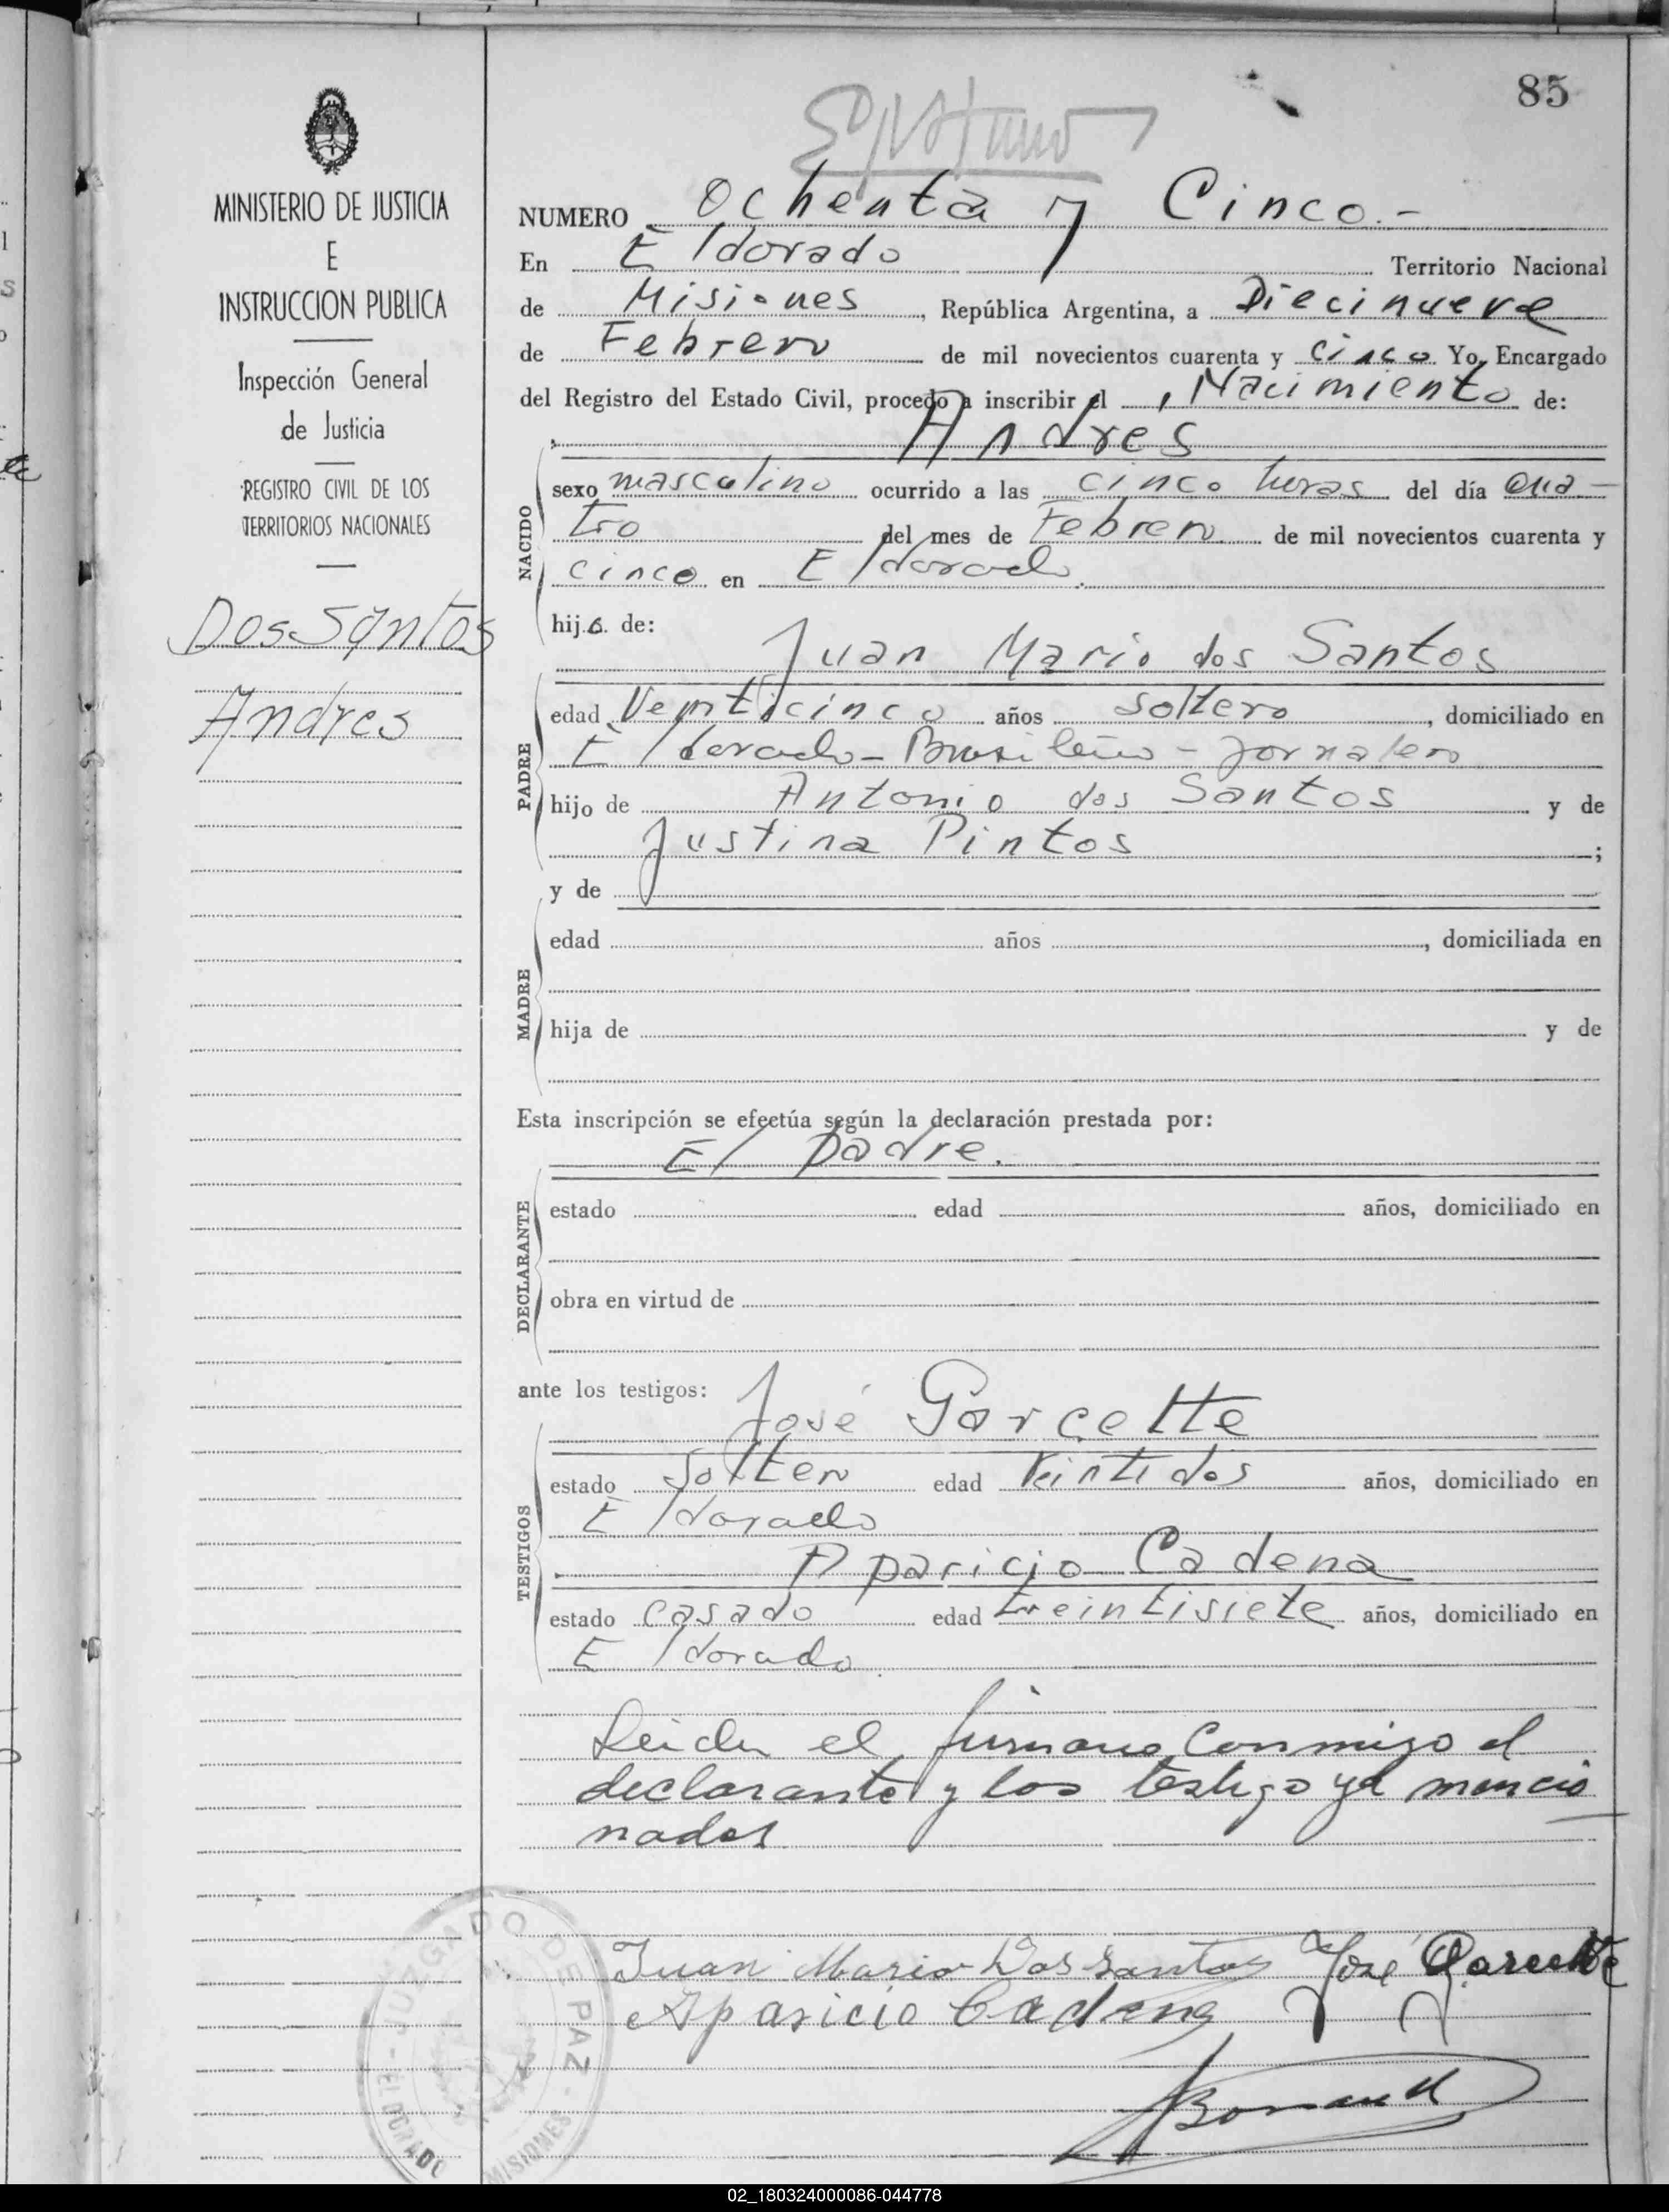 85
MINISTERIO DE JUSTICIA
E
INSTRUCCION PUBLICA
Inspección General
de Justicia
REGISTRO CIVIL DE LOS
TERRITORIOS NACIONALES
Dos Santos
Andres
NUMERO Ochenta y Cinco.-
En Eldorado Territorio Nacional
de Misiones, República Argentina, a Diecinueve
de Febrero de mil novecientos cuarenta y cinco Yo, Encargado
del Registro del Estado Civil, procedo a inscribir el Nacimiento de:
Andres
NACIDO
sexo masculino ocurrido a las cinco horas del día cua-
tro del mes de Febrero de mil novecientos cuarenta y
cinco en Eldorado.
hijo de:
Juan Mario dos Santos
PADRE
edad Veinticinco años soltero, domiciliado en
Eldorado - Brasileño - Jornalero
hijo de Antonio dos Santos y de
Justina Pintos;
y de
MADRE
edad años, domiciliada en
hija de y de
Esta inscripción se efectúa según la declaración prestada por:
El padre.
DECLARANTE
estado edad años, domiciliado en
obra en virtud de
ante los testigos:
José Garcette
TESTIGOS
estado Soltero edad Veintidos años, domiciliado en
Eldorado
Aparicio Cadena
estado casado edad treintisiete años, domiciliado en
Eldorado.
Leida el firmano conmigo el
declarante y los testigo ya mencio
nados
Juan Mario Dos Santos José Garcette
Aparicio Cadena
JUZGADO DE PAZ - ELDORADO MISIONES
02_180324000086-044778